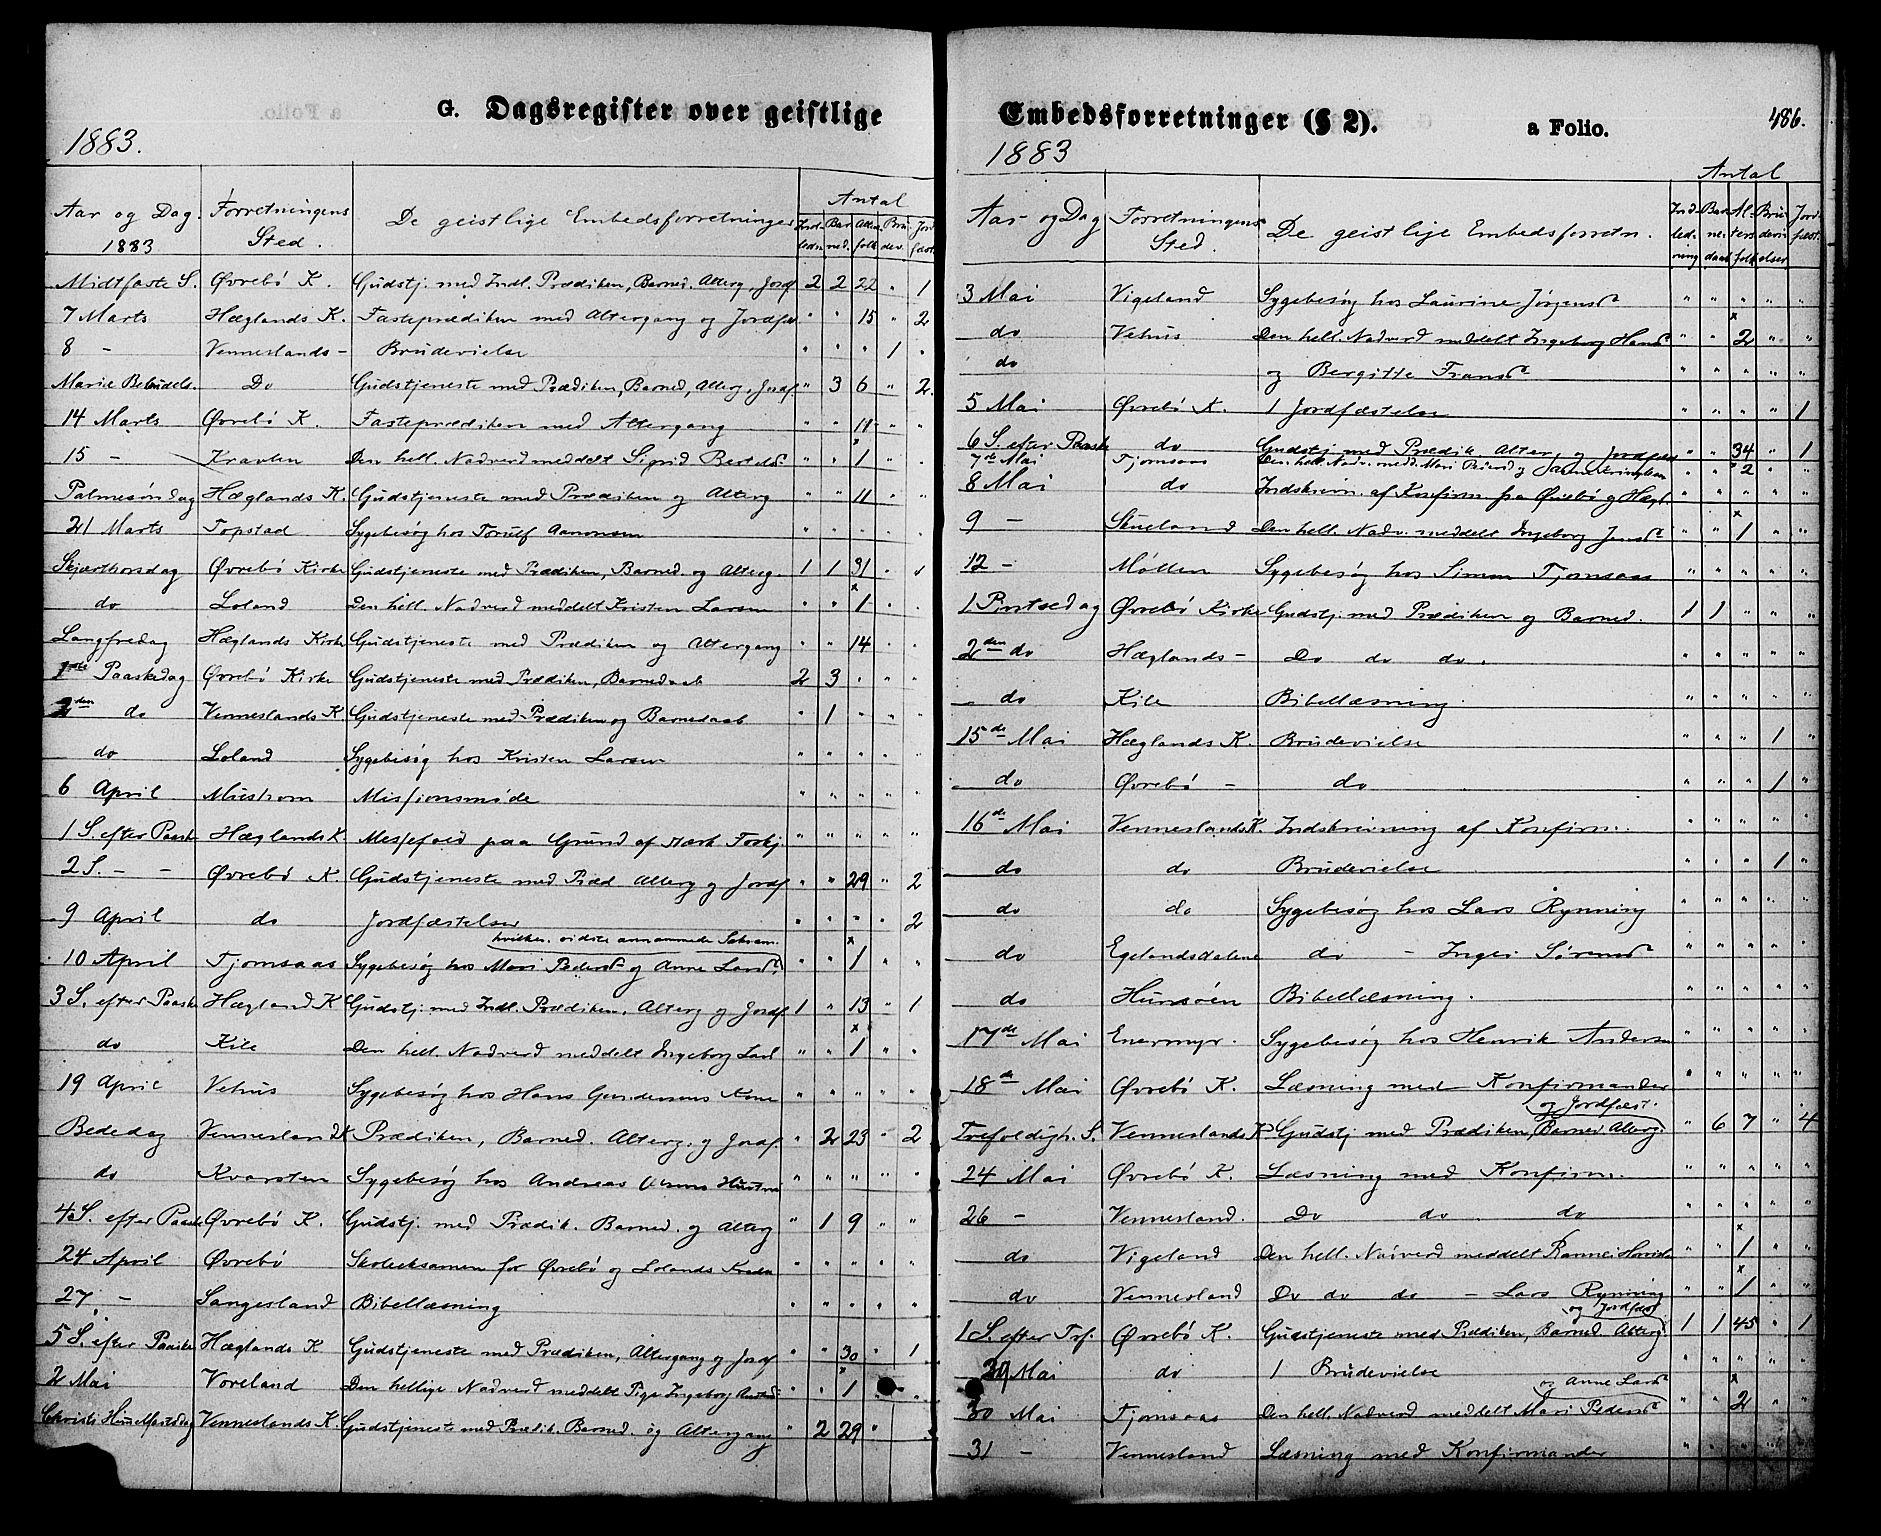 G. Dagsregister over geistlige
1883.
Aar og Dag. 1883 Forretningens Sted. De geistlige Embedsforretninger Antal
Indledn. Barned. Alterfolk Brudev. Jordfæst.
Midtfaste S. Øvrebö K. Gudstj. med Indl. Prædiken, Barned. Alterg, Jordf 2 2 22 " 1
7 Marts Hæglands K. Fasteprædiken med Altergang og Jordfæ. " " 15 " 2
8 - Venneslands - Brudevielse " " " 1 "
Marie Bebudels. Do Gudstjeneste med Prædiken, Barned, Alterg, Jordf. " 3 6 " 2.
14 Marts Øvrebö K. Fasteprædiken med Altergang " " 11 " "
15 - Kravten Den hell. Nadverd meddelt Sigrid Bertelsd. " " x 1 " "
Palmesöndag Hæglands K. Gudstjeneste med Prædiken og Alterg " " 11 " "
21 Marts Topstad Sygebesög hos Torulf Aanonsen " " " " "
Skjærthorsdag Øvrebö Kirke Gudstjeneste med Prædiken, Barned. og Alterg. 1 1 31 " "
do Loland Den hell. Nadverd meddelt Kristen Larsen " " x 1 " "
Langfredag Hæglands Kirke Gudstjeneste med Prædiken og Altergang " " 14 " "
1ste Paaskedag Øvrebö Kirke Gudstjeneste med Prædiken, Barnedaab 2 3 " " "
2den do Venneslands K Gudstjeneste med Prædiken og Barnedaab " 1 " " "
do Loland Sygebesög hos Kristen Larsen " " " " "
6 April Mushom Missionsmöde " " " " "
1 S. efter Paaske Hæglands K. Messefald paa Grund af stærk Forkj. " " " " "
2 S. - - Øvrebö K. Gudstjeneste med Præd Alterg og Jordf " " 29 " 2
9 April do Jordfæstelser " " " " 2
hvilken sidste annammede Sakram.
10 April Tjomsaas Sygebesög hos Mari Pedersd og Anne Larsd. " " x 1 " "
3 S. efter Paaske Hægland K Gudstj. med Indl. Prædiken, Alterg og Jordf 1 " 13 " 1
do Kile Den hell. Nadverd meddelt Ingeborg Larsd " " x 1 " "
19 April Vehus Sygebesög hos Hans Gundersens Kone " " " " "
Bededag Vennesland K Prædiken, Barned. Alterg. og Jordf. " 2 23 " 2
do Kvarsten Sygebesög hos Andreas Hustru " " " " "
4 S. efter Paaske Øvrebö K. Gudstj. med Prædik. Barned. og Alterg " 1 9 " "
24 April Øvrebö Skoleeksamen for Øvrebö og Lolands Kreds " " " " "
27. - Sangesland Bibellæsning " " " " "
5 S. efter Paaske Hæglands K Gudstjeneste med Prædiken, Altergang og Jordf " " 30 " 1
2 Mai Voreland Den hellige Nadverd meddelt Pige Ingeborg " " x 1 " "
Christi Himmelfartsdag Venneslands K Gudstjeneste med Prædik. Barned. og Altergang " 2 29 "
Embedsforretninger (§ 2). a Folio. 486.
1883
Aar- og Dag Forretningens Sted. De geistlige Embedsforretn. Antal
Indledning Barnedaab Altersfolk Brudevielser Jordfæst.
3 Mai Vigeland Sygebesög hos Laurine Jörgensd " " " " "
do Vehus Den hell. Nadverd meddelt Ingeborg Hansd " " x 2 " "
do og Bergitte Fransd " " " " "
5 Mai Øvrebö K. 1 Jordfæstelse " " " " 1
6 S. efter Paaske do Gudstj med Prædik Alter, og Jordfæst " " 34 " 1
7de Mai Tjomsaas Den hell. Nadv. medd. Mari Pedersd og " " x 2 "
8 Mai do Indskrivn. af Konfirm fra Øvrebö og Hægl. " " " " "
9 - Skueland Den hell. Nadv. meddelt Ingeborg Jensd " " x 1 " "
12 - Möllen Sygebesög hos Simon Tjomsaas " " " " "
1 Pintsedag Øvrebö Kirke Gudstj. med Prædiken og Barned. 1 1 " " "
2den do Hæglands - Do do do. " " " " "
do Kile Bibellæsning. " " " " "
15de Mai Hæglands K. Brudevielse " " " 1 "
do Øvrebö - do " " " 1 "
16de Mai Venneslands K. Indskrivning af Konfirm. " " " " "
do do Brudevielse " " " 1 "
do do Sygebesög hos Lars Rynning " " " " "
do Egelandsdalene do - Inger Sörensd " " " " "
do Hunsöen Bibellæsning. " " " " "
17de Mai Enermyr. Sygebesög hos Henrik Andersen " " " " "
18de Mai Øvrebö K. Læsning med Konfirmander " " " " "
og Jordfæst.
Trefoldigh. S. Venneslands K Gudstj med Prædiken, Barned Alterg. " 6 7 " 4
24 Mai Øvrebö K. Læsning med Konfirm. " " " " "
26 - Vennesland. Do do do " " " " "
do Vigeland Den hell. Nadverd meddelt Rannei " " x 1 " "
do Vennesland Do do do - Lars Rynning " " x 1 " "
og Jordfæst
1 S. efter Tref. Øvrebö K. Gudstjeneste med Prædiken, Barned. Alterg. 1 1 45 " 1
29 Mai do 1 Brudevielse " " " " "
og Anne Larsd
30 Mai Tjomsaas Den hell. Nadverd meddelt Mari Pedersd " " x 2 " "
31 - Vennesland Læsning med Konfirmander " " " " "